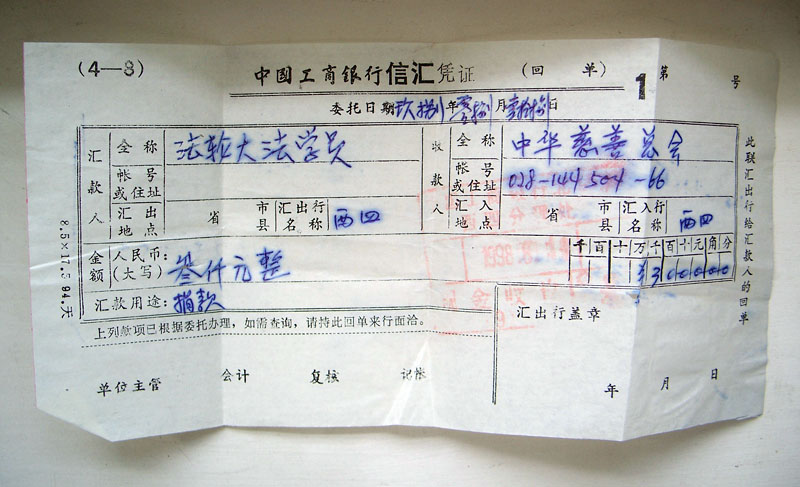 (4—8) 中国工商银行信汇凭证 (回 单) 1 第 号
委托日期玖捌年零捌月壹拾捌日
汇款人
全称 法轮大法学员
帐号或住址
汇出地点 省 市县 汇出行名称 西四
收款人
全称 中华慈善总会
帐号或住址 028-144504-66
汇入地点 省 市县 汇入行名称 西四
金额 人民币:(大写) 叁仟元整
千百十万千百十元角分
¥300000
汇款用途: 捐款
上列款项已根据委托办理,如需查询,请持此回单来行面洽。
汇出行盖章
单位主管 会计 复核 记帐
年 月 日
此联汇出行给汇款人的回单
8.5×17.5 94.天